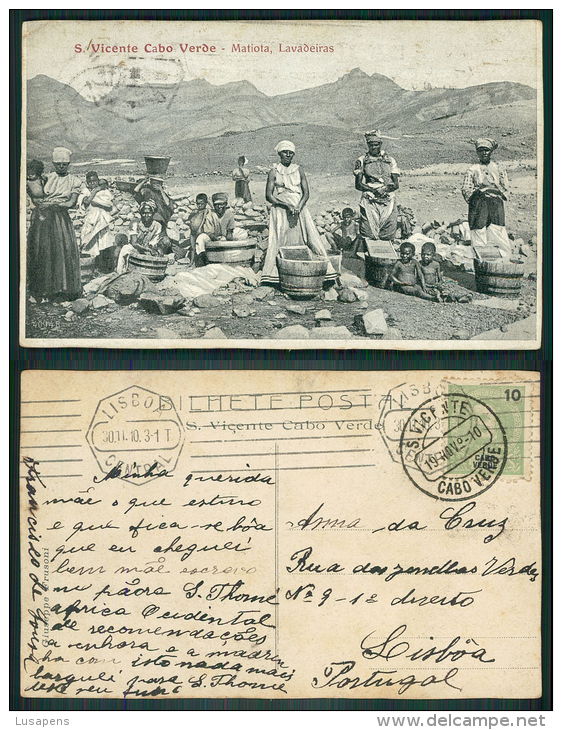 S. Vicente Cabo Verde - Matiota, Lavadeiras
BILHETE POSTAL
S. Viçente Cabo Verde
LISBOA
30.11.10. 3-1 T
CENTRAL
S. VICENTE
CABO VERDE
10
CABO VERDE
Minha querida
mãe o que estimo
e que fica-se bôa
que eu cheguei
bem mãe escreva
S. Thomé
africa Ocidental
de recomendações
a senhora e a madrinha
isto nada mais
para S. Thomé
Francisco de Sousa
Giuseppe Frusoni
Anna da Cruz
Rua das Verdes
Nº 9 - 1º direito
Lisbôa
Portugal
Lusapens
www.delcampe.net